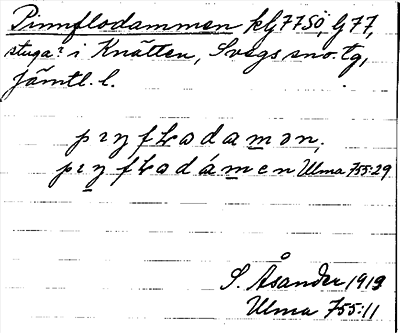 Pinnflodammen kG77SÖ, G77,
stuga? i Knätten, Svegs sno. tg,
Jämtl. l.
pɪnfɫodamən,
pɪnfɫodámen Ulma 755:29
S. Åsander 1919
Ulma 755:11